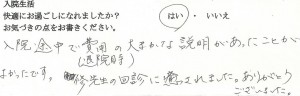 入院生活
快適にお過ごしになれましたか? はい ・ いいえ
お気づきの点をお書きください。
入院途中で費用の大まかな説明があったことが
(退院時)
よかったです。 修先生の回診に癒されました。ありがとう
ございました。